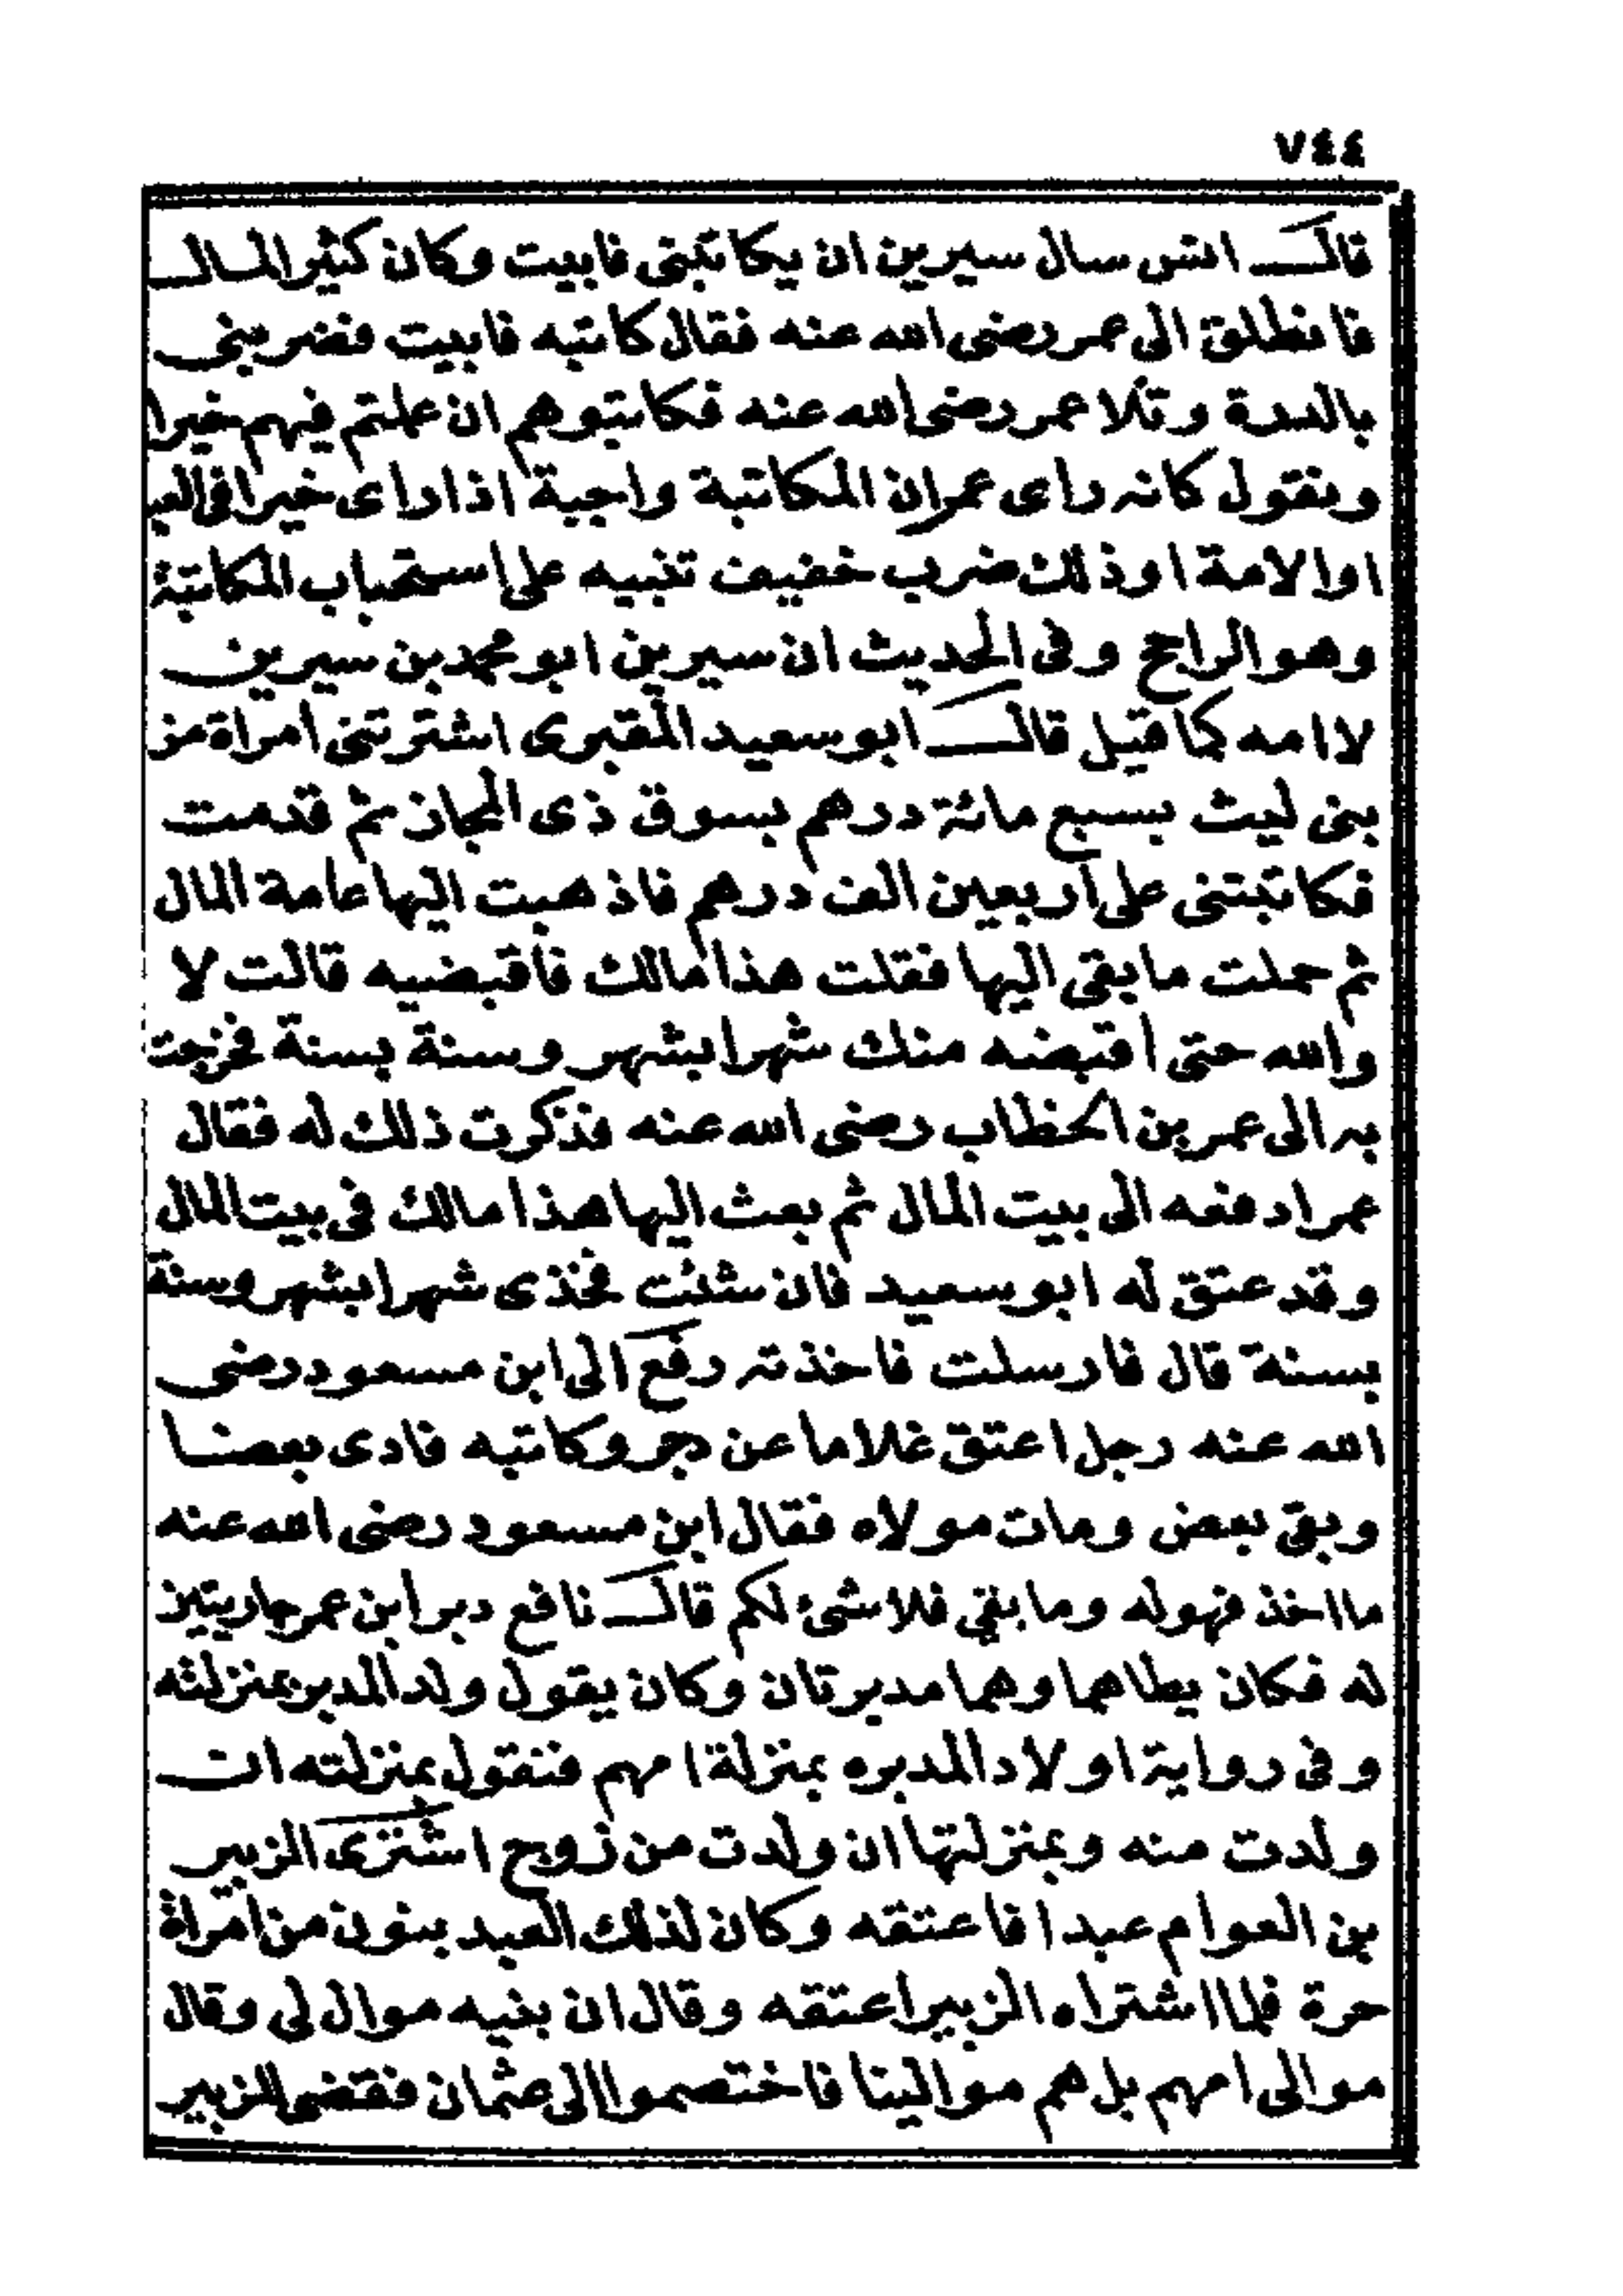 ٧٤٤
قال انس سال سيرين ان يكاتبنى فابيت وكان كثير المال
فانطلق الى عمر رضى الله عنه فقال كاتبه فابيت فضربنى
بالدرة وتلا عمر رضى الله عنه فكاتبوهم ان علمتم فيهم خيرا
ونقول كانه راى عمران المكاتبة واجبة اذا راى خيرا فى العبد
او الامة او ذلك ضرب خفيف تنبيه على استحباب المكاتبة
وهو الراجح وفى الحديث ان سيرين ابو محمد بن سيرين
لا امه كما قيل قال ابو سعيد المقبرى اشترتنى امراة من
بنى ليث بسبع مائة درهم بسوق ذى المجاز ثم قدمت
فكاتبتنى على اربعين الف درهم فاذهبت اليها عامة المال
ثم حملت ما بقى اليها فقلت هذا مالك فاقبضيه قالت لا
والله حتى اقبضه منك شهرا بشهر وسنة بسنة فخرجت
به الى عمر بن الخطاب رضى الله عنه فذكرت ذلك له فقال
عمر ادفعه الى بيت المال ثم بعث اليها هذا مالك فى بيت المال
وقد عتق له ابو سعيد فان شئت فخذى شهرا بشهر وسنة
بسنة قال فارسلت فاخذته رفع الى ابن مسعود رضى
الله عنه رجل اعتق غلاما عن دبر وكاتبه فادى بعضا
وبقى بعض ومات مولاه فقال ابن مسعود رضى الله عنه
ما اخذ فهوله وما بقى فلا شئ لكم قال نافع دبر ابن عمر جاريتين
له فكان يطاهما وهما مدبرتان وكان يقول ولد المدبر بمنزلته
وفى رواية اولاد المدبره بمنزلة امهم فنقول بمنزلته ان
ولدت منه وبمنزلتها ان ولدت من زوج اشترى الزبير
بن العوام عبدا فاعتقه وكان لذلك العبد بنون من امراة
حرة فلما اشتراه الزبير اعتقه وقال ان بنيه موال لى وقال
موالى امهم بل هم موالينا فاختصموا الى عثمان فقضى للزبير